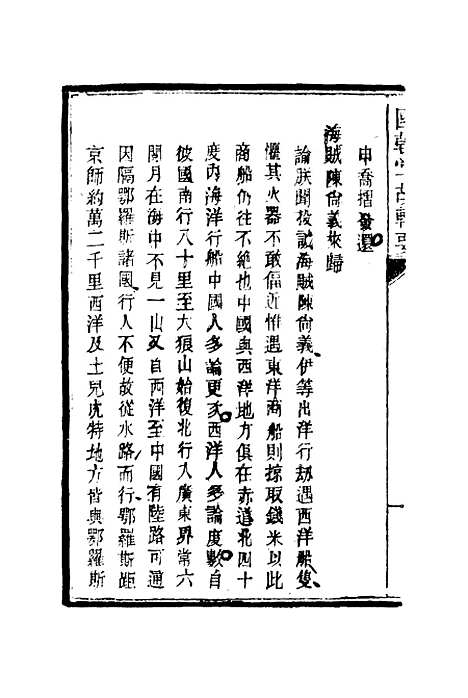 申喬摺發還
海賊陳尙義來歸
諭朕聞投誠海賊陳尙義伊等出洋行刼遇西洋船隻
懼其火器不敢偪近惟遇東洋商船則掠取錢米以此
商船仍往不絕也中國與西洋地方俱在赤道北四十
度內海洋行船中國人多論更次西洋人多論度數自
彼國南行八十里至大狼山始復北行入廣東界常六
閱月在海中不見一山又自西洋至中國有陸路可通
因隔鄂羅斯諸國行人不便故從水路而行鄂羅斯距
京師約萬二千里西洋及土兒虎特地方皆與鄂羅斯